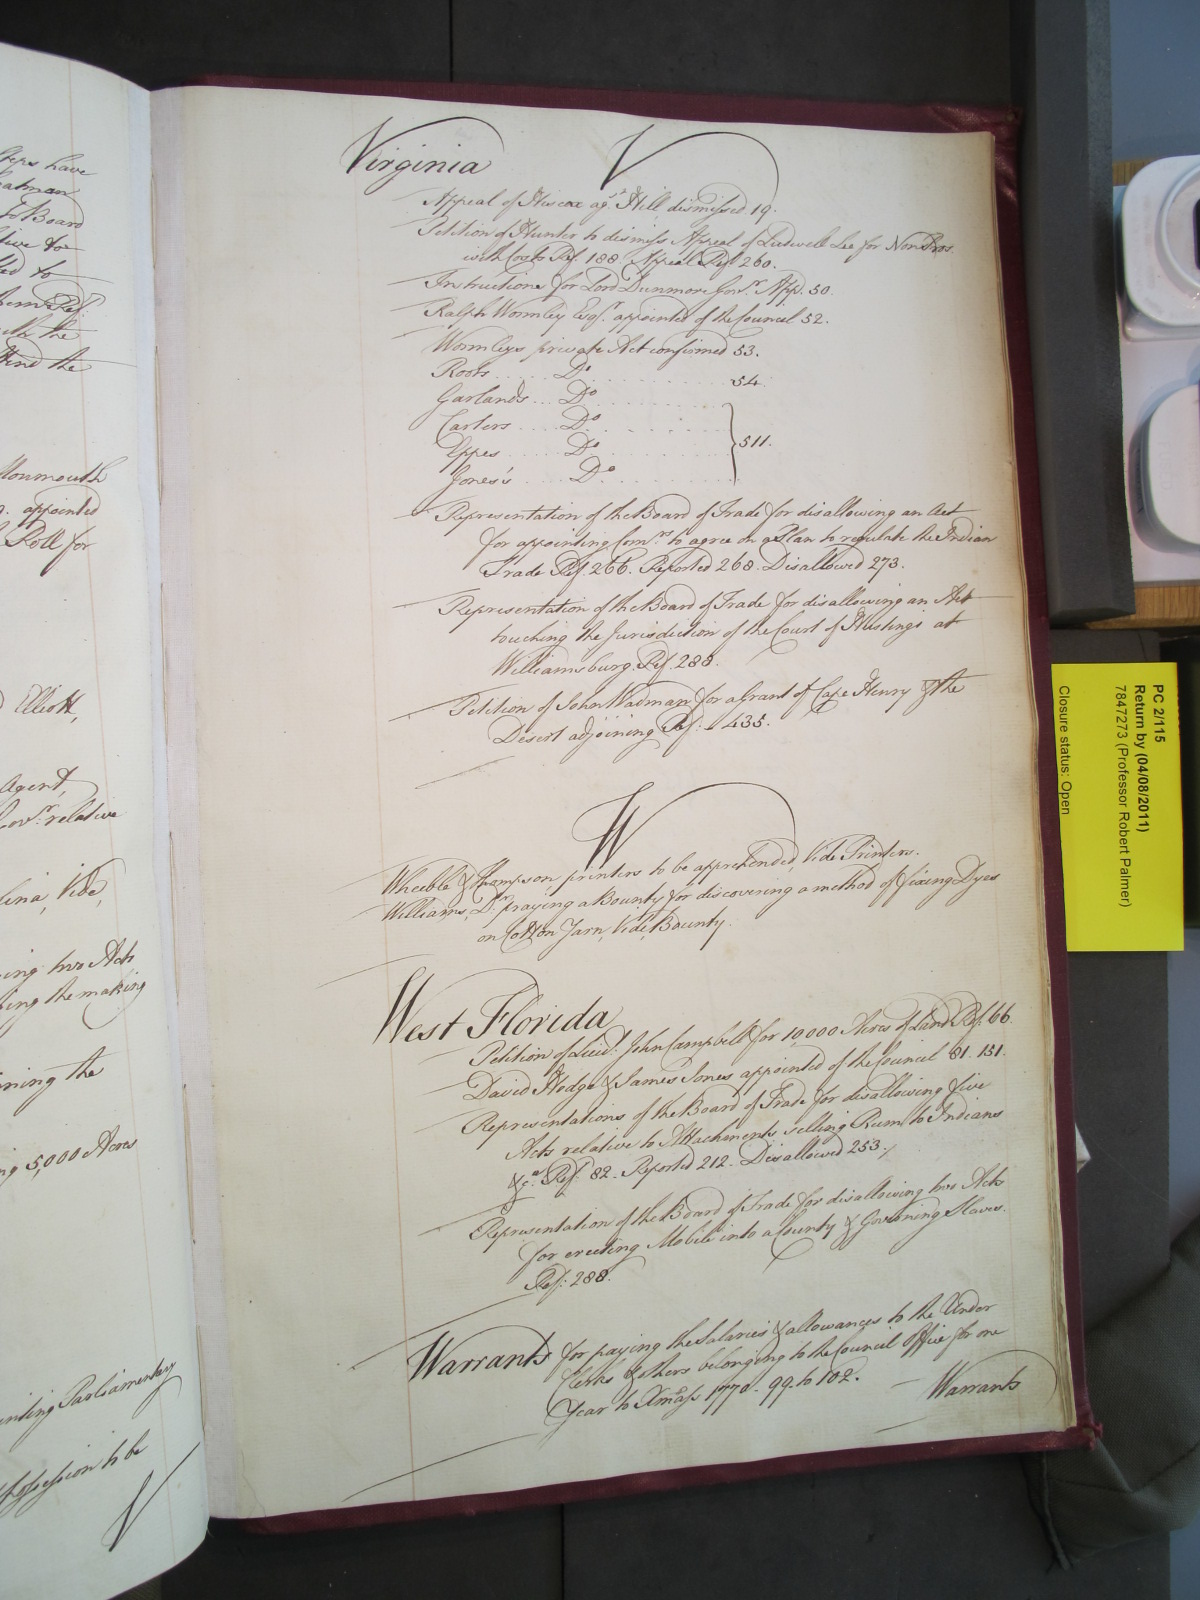 V
Virginia
Appeal of Hiscox agst. Hill, dismissed 19.
Petition of Hunter to dismiss Appeal of Ludwell Lee for Non Pros.
with Costs Ref. 188 Appeal Ref. 260.
Instructions for Lord Dunmore Govr. App. 50.
Ralph Wormley Esqr. appointed of the Council 52.
Wormleys private Act confirmed 53.
Roots .... Do ........ 54.
Garlands ... Do
Carters .... Do
Eppes .... Do 511.
Jones's .... Do
Representation of the Board of Trade for disallowing an Act
for appointing Comrs. to agree on a Plan to regulate the Indian
Trade Ref. 266. Reported 268. Disallowed 273.
Representation of the Board of Trade for disallowing an Act
touching the Jurisdiction of the Court of Hustings at
Williamsburg. Ref. 288.
Petition of John Wadman for a Grant of Cape Henry & the
Desert adjoining Ref: 435.
W
Wheeble & Thompson, printers to be apprehended, Vide Printers.
Williams, Dr. praying a Bounty for discovering a method of fixing Dyes
on Cotton Yarn, Vide, Bounty.
West Florida
Petition of Lieut. John Campbell for 10,000 Acres of Land Ref. 66
David Hodge & James Jones appointed of the Council 81. 151.
Representations of the Board of Trade for disallowing five
Acts relative to Attachments selling Rum to Indians
&ca. Ref. 82. Reported 212. Disallowed 253./
Representation of the Board of Trade for disallowing two Acts
for erecting Mobile into a County & Governing Slaves.
Ref: 288.
Warrants for paying the Salaries & allowances to the Under
Clerks & others belonging to the Council Office for one
Year to Xmass 1770. 99. to 102.
Warrants
Steps have
to Board
the
find the
Monmouth
appointed
Poll for
Elliott,
Agent,
Govr. relative
Vide,
ing two Acts
ing the making
ning the
5,000 Acres
Parliament
Possession to be
V
PC 2/115
Return by (04/08/2011)
7847273 (Professor Robert Palmer)
Closure status: Open